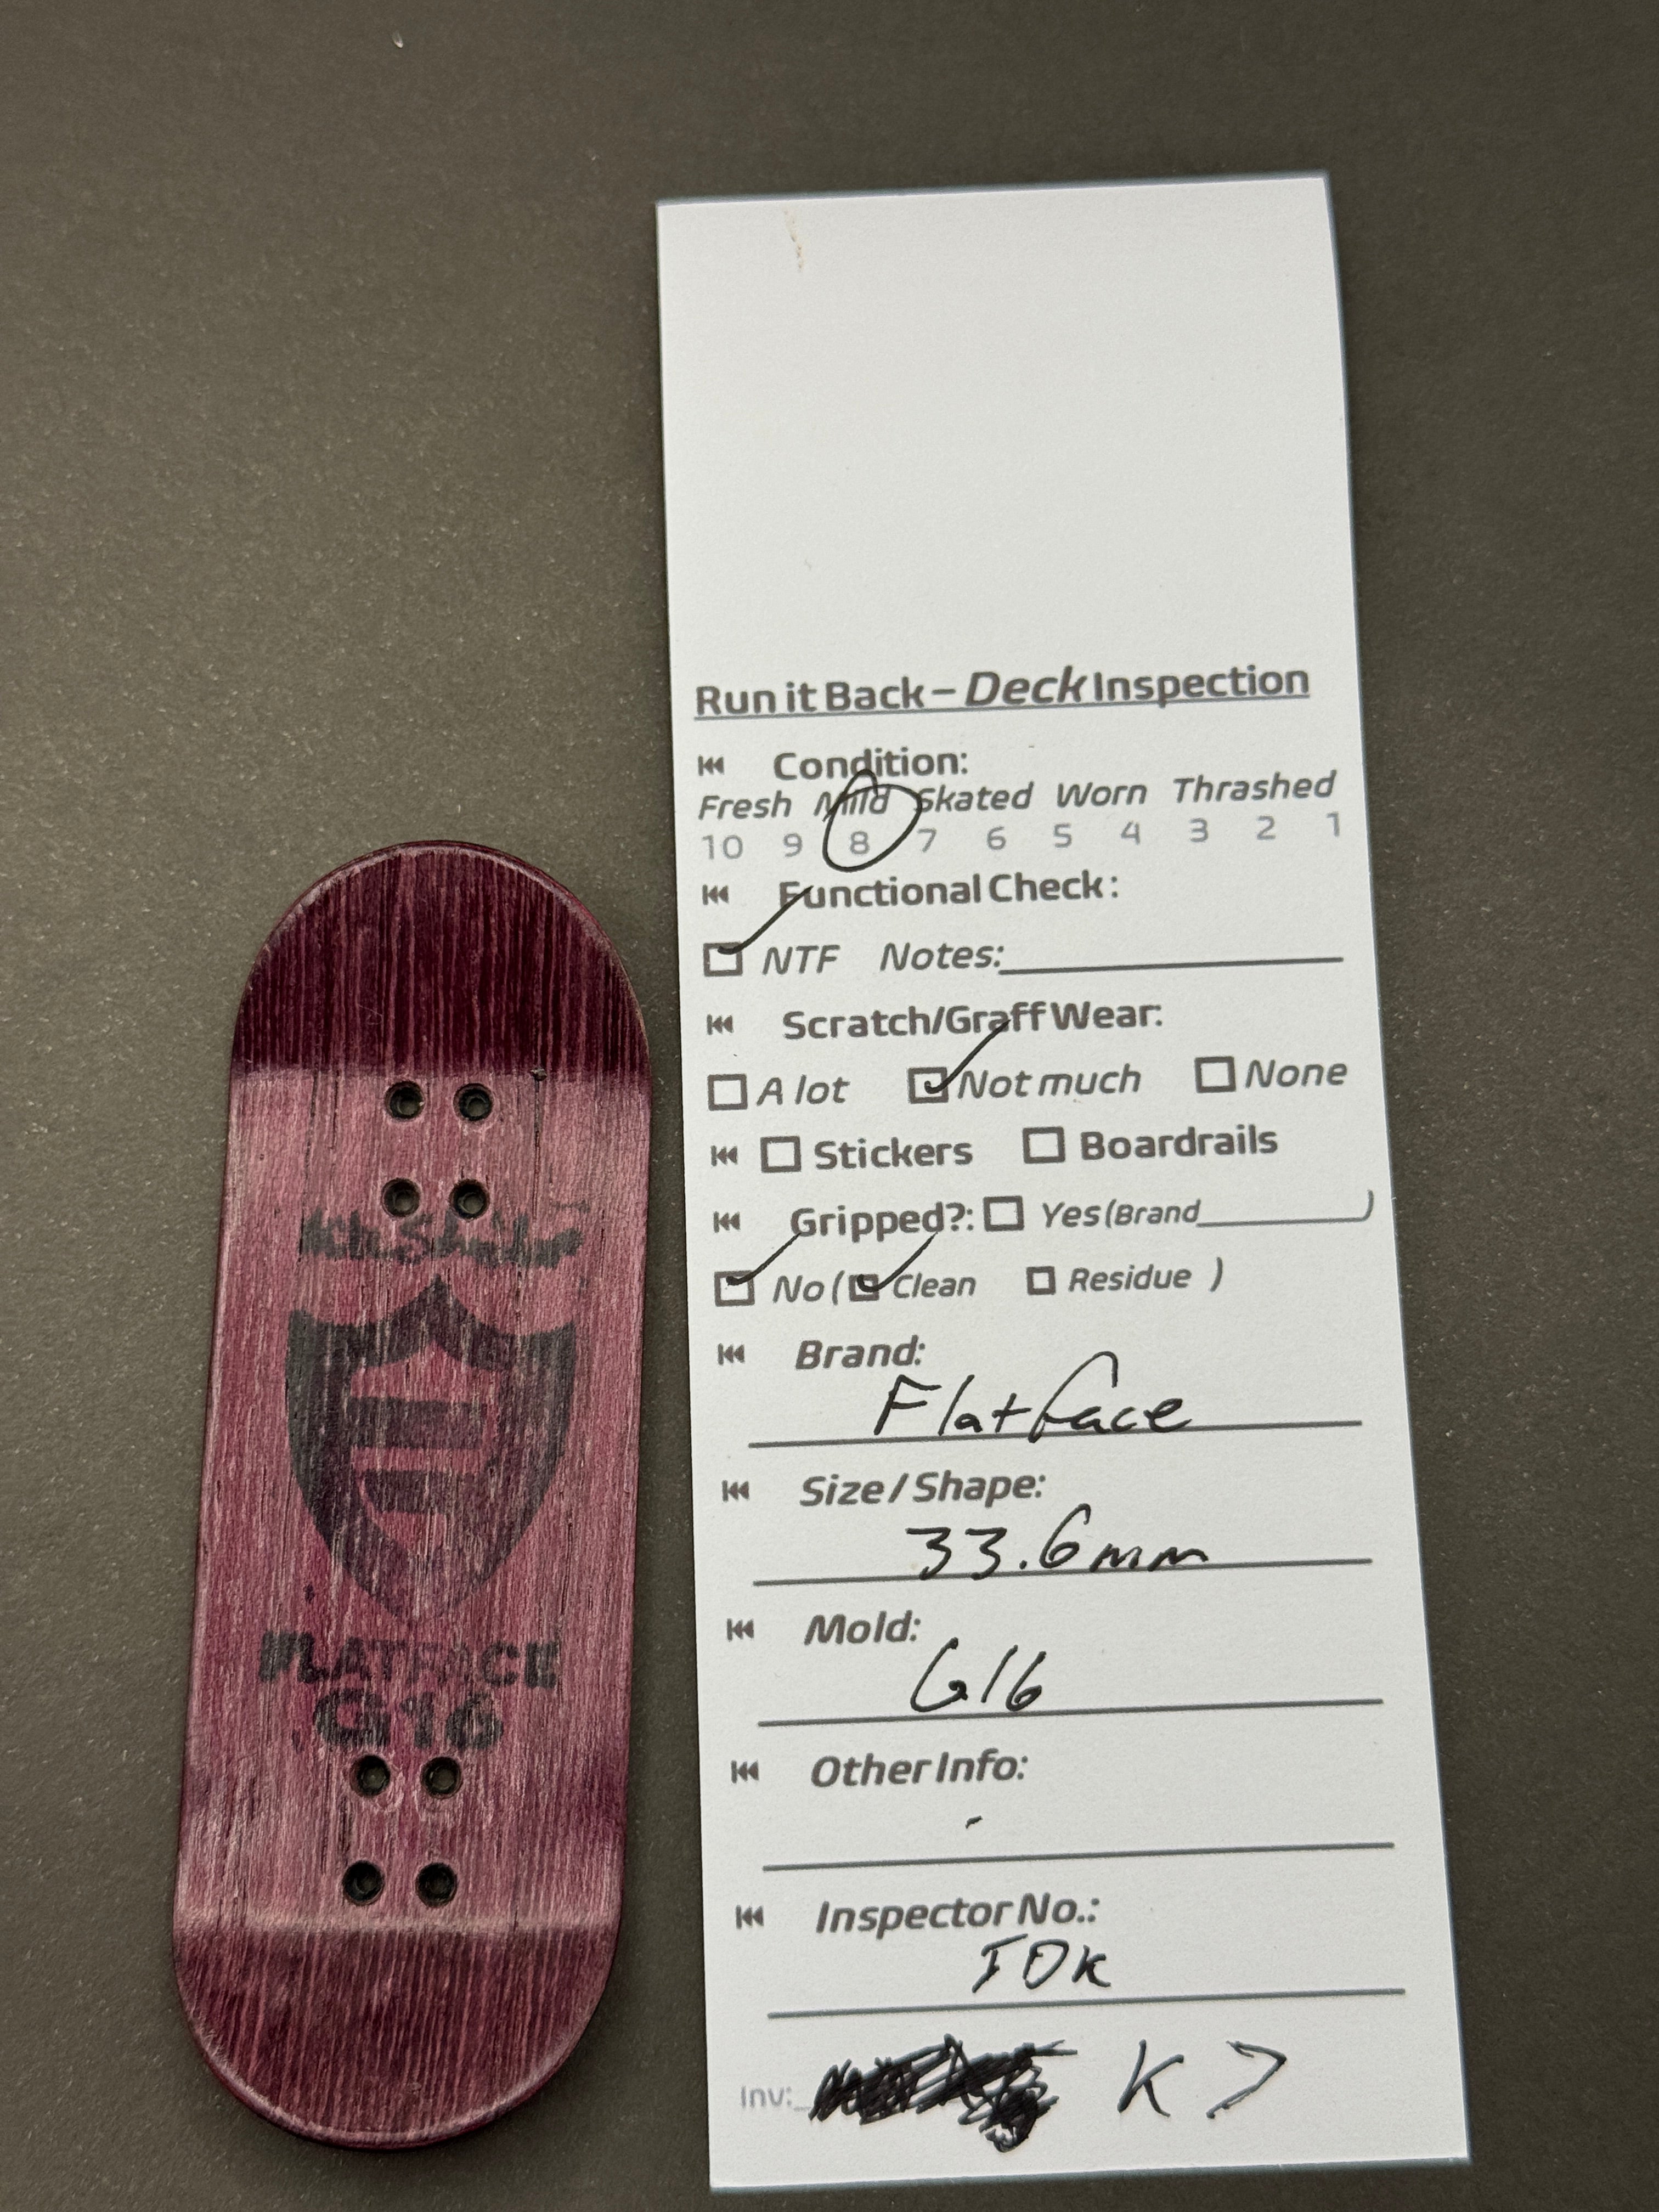 Run it Back – Deck Inspection
Condition:
Fresh Mild Skated Worn Thrashed
10 9 8 7 6 5 4 3 2 1
Functional Check:
NTF Notes:
Scratch/Graff Wear:
A lot Not much None
Stickers Boardrails
Gripped?: Yes (Brand )
No ( Clean Residue )
Brand:
Flatface
Size / Shape:
33.6mm
Mold:
G16
Other Info:
Inspector No.:
Inv:
FLATFACE
G16